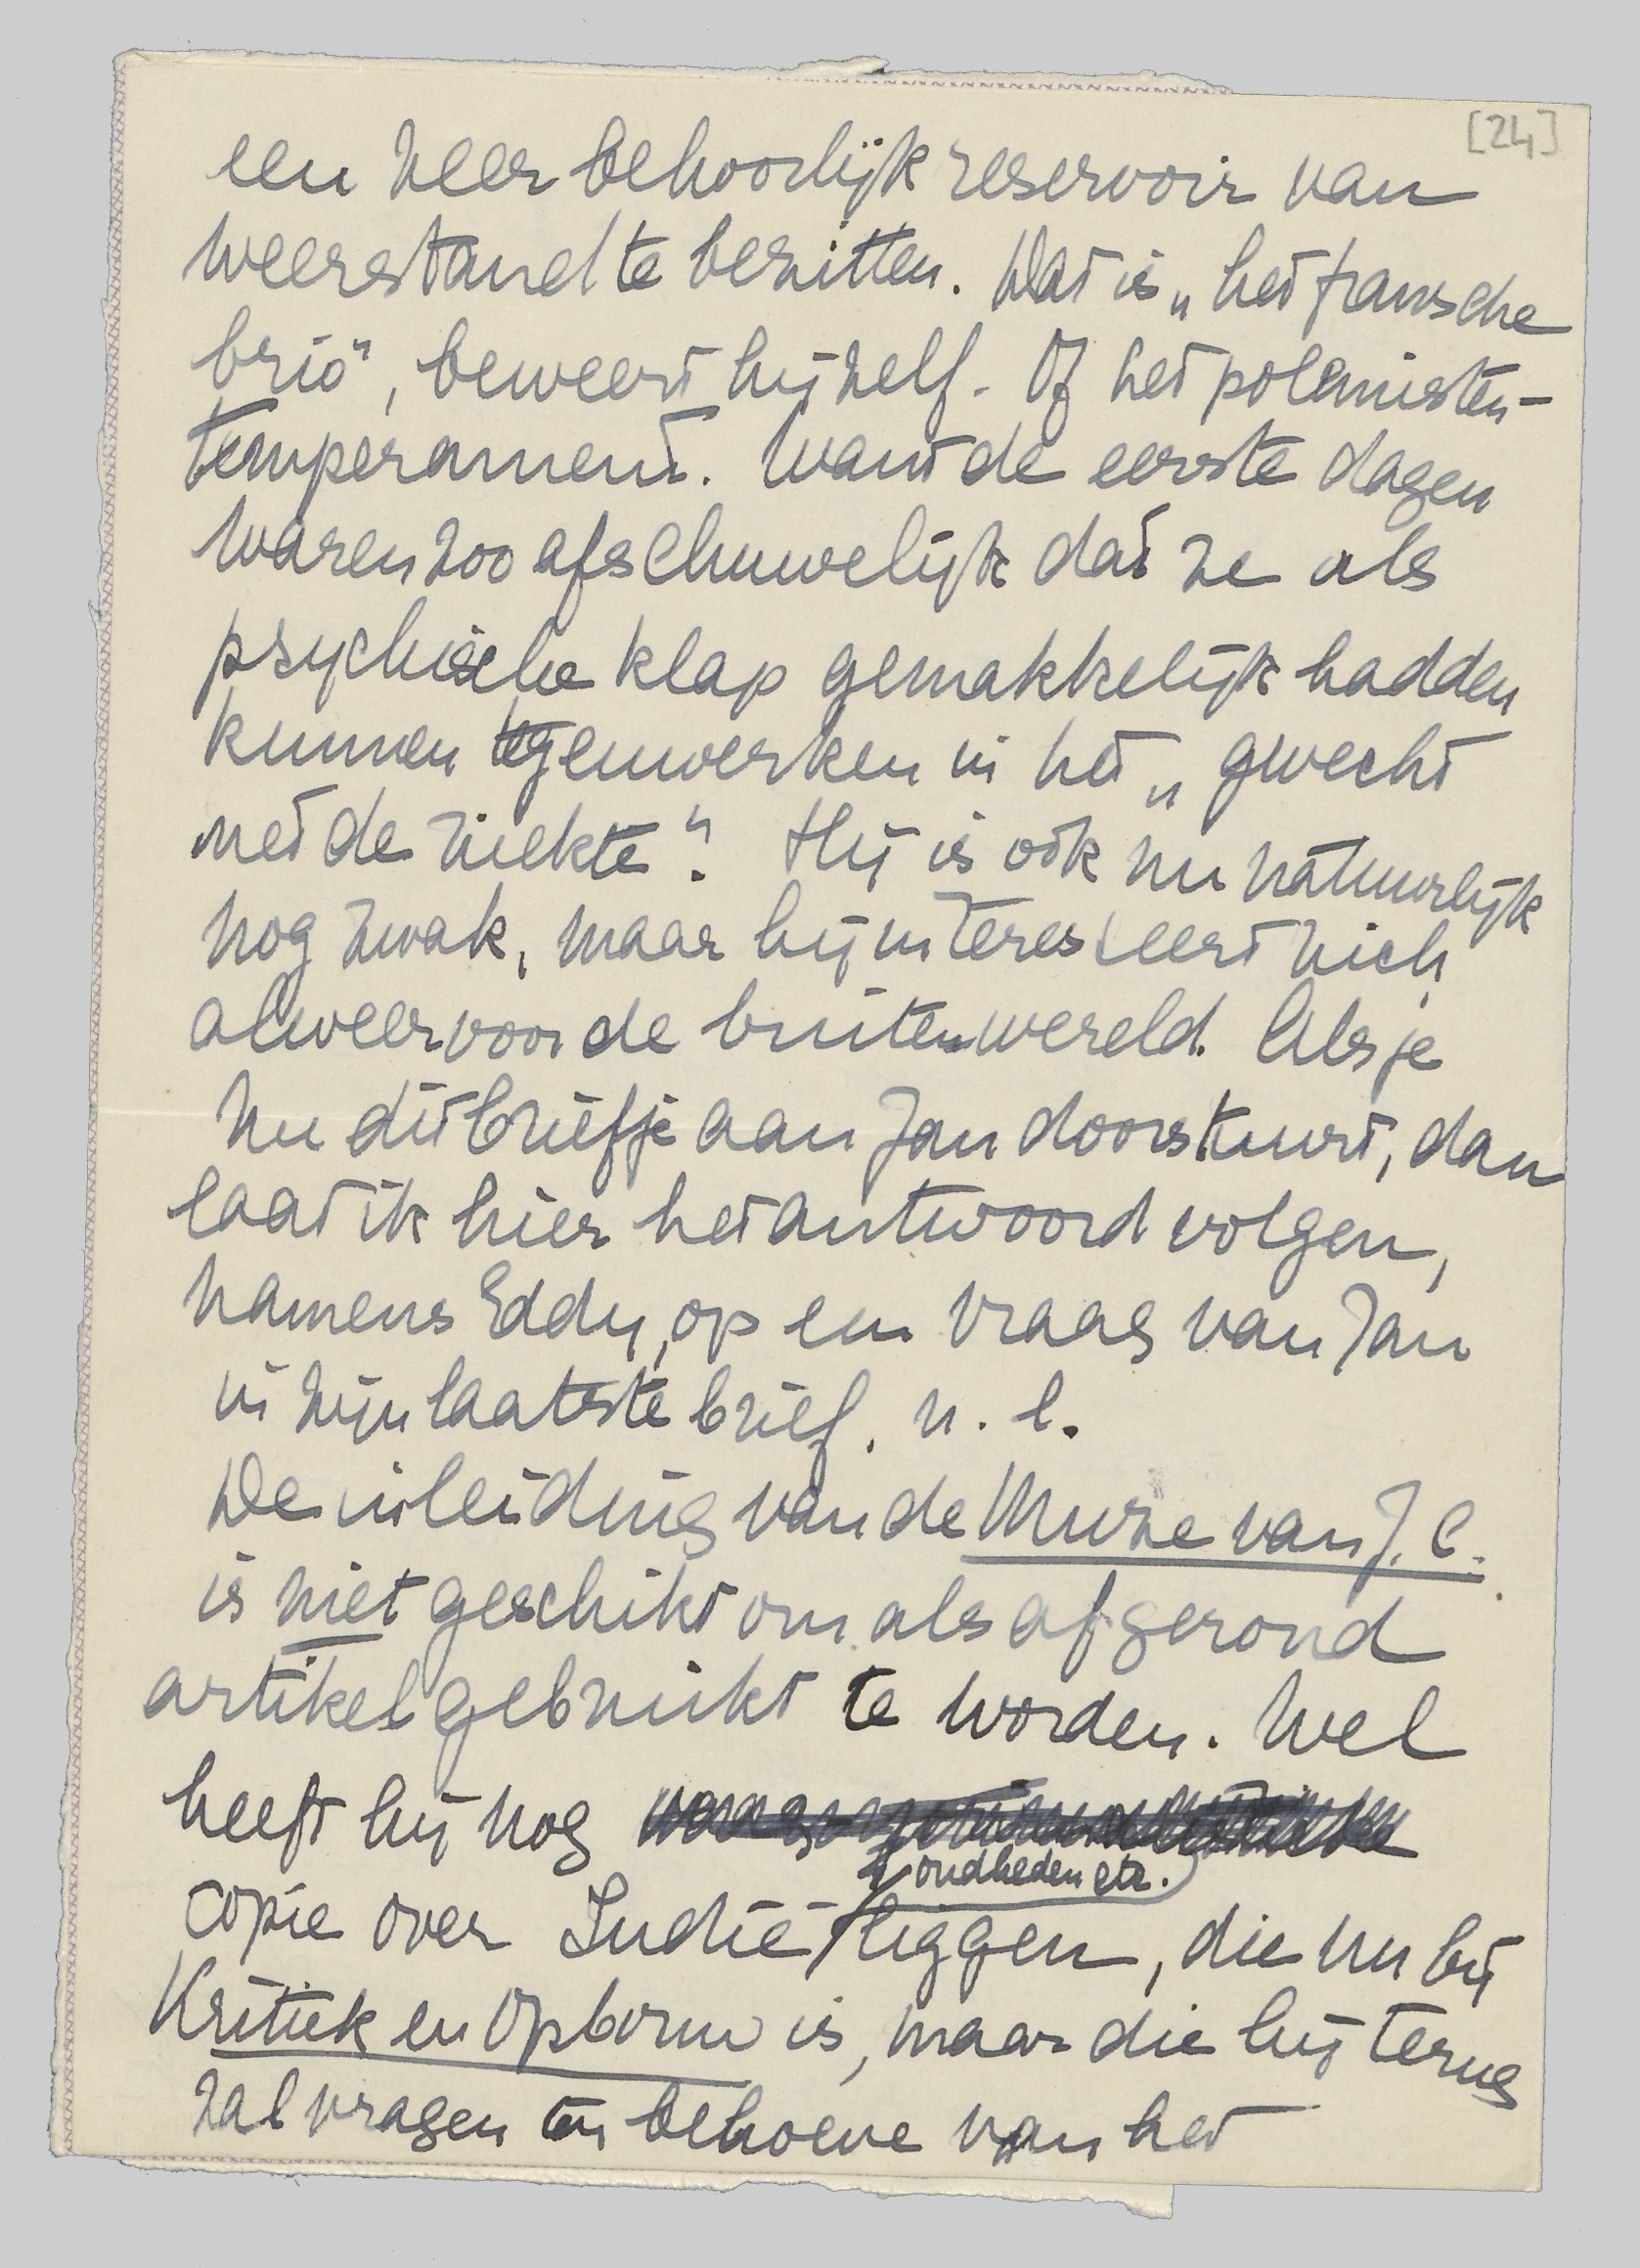 [24]
een zeer behoorlijk reservoir van
weerstand te bezitten. Dat is „het fransche
brio", beweert hijzelf. Of het polemisten-
temperament. Want de eerste dagen
waren zoo afschuwelijk dat ze als
psychische klap gemakkelijk hadden
kunnen tegenwerken in het „gevecht
met de ziekte". Hij is ook nu natuurlijk
nog zwak, maar hij interesseert zich
alweer voor de buitenwereld. Als je
nu dit briefje aan Jan doorstuurt, dan
laat ik hier het antwoord volgen,
namens Eddy, op een vraag van Jan
in zijn laatste brief. n.l.
De inleiding van de Muze van J.C.
is niet geschikt om als afgerond
artikel gebruikt te worden. Wel
heeft hij nog
oudheden etc.
copie over Indië liggen, die nu bij
Kritiek en Opbouw is, maar die hij terug
zal vragen ten behoeve van het